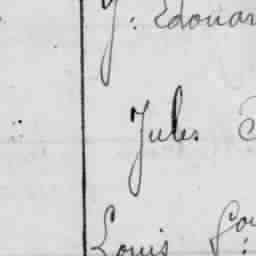 J. Edouar
Jules
Louis